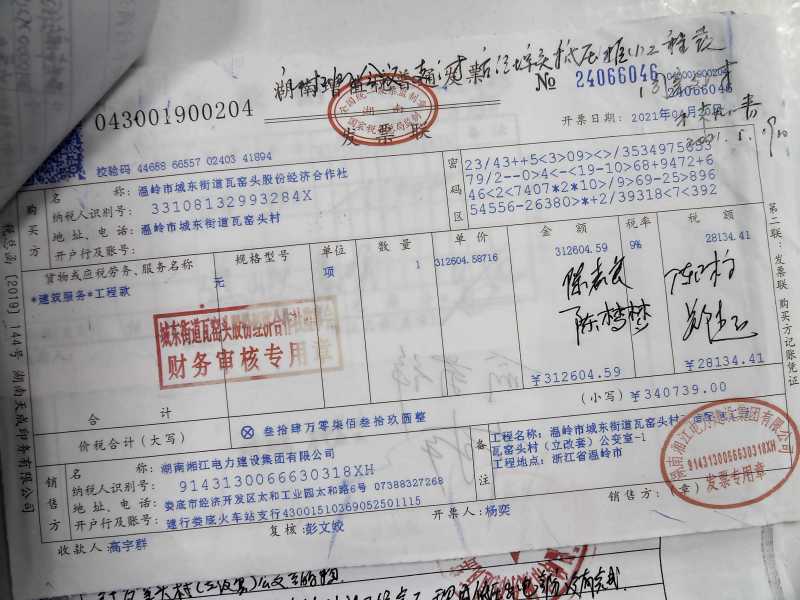 043001900204
湖南增值税普通发票
发票联
No 24066046
043001900204
24066046
开票日期: 2021年04月26日
校验码 44688 66557 02403 41894
购买方
名称: 温岭市城东街道瓦窑头股份经济合作社
纳税人识别号: 33108132993284X
地址、电话: 温岭市城东街道瓦窑头村
开户行及账号:
密码区
23/43++5<3>09><>/3534975653
79/2--0>4<-<19-10>68+9472+6
46<2<7407*2*10>/9>69-25>896
54556-26380>*+2/39318<7<392
货物或应税劳务、服务名称 规格型号 单位 数量 单价 金额 税率 税额
*建筑服务*工程款 元 项 1 312604.58716 312604.59 9% 28134.41
城东街道瓦窑头股份经济合作社
财务审核专用章
合计 ¥312604.59 ¥28134.41
价税合计(大写) ⊗ 叁拾肆万零柒佰叁拾玖圆整 (小写) ¥340739.00
销售方
名称: 湖南湘江电力建设集团有限公司
纳税人识别号: 9143130066630318XH
地址、电话: 娄底市经济开发区太和工业园太和路6号 07388327268
开户行及账号: 建行娄底火车站支行43001510369052501115
备注
工程名称: 温岭市城东街道瓦窑头村
瓦窑头村(立改套)公变室-1
工程地点: 浙江省温岭市
收款人: 高宇群 复核: 彭文姣 开票人: 杨奕 销售方: (章)
9143130066630318XH
发票专用章
第二联:发票联 购买方记账凭证
税总函〔2019〕144号 湖南天成印务有限公司